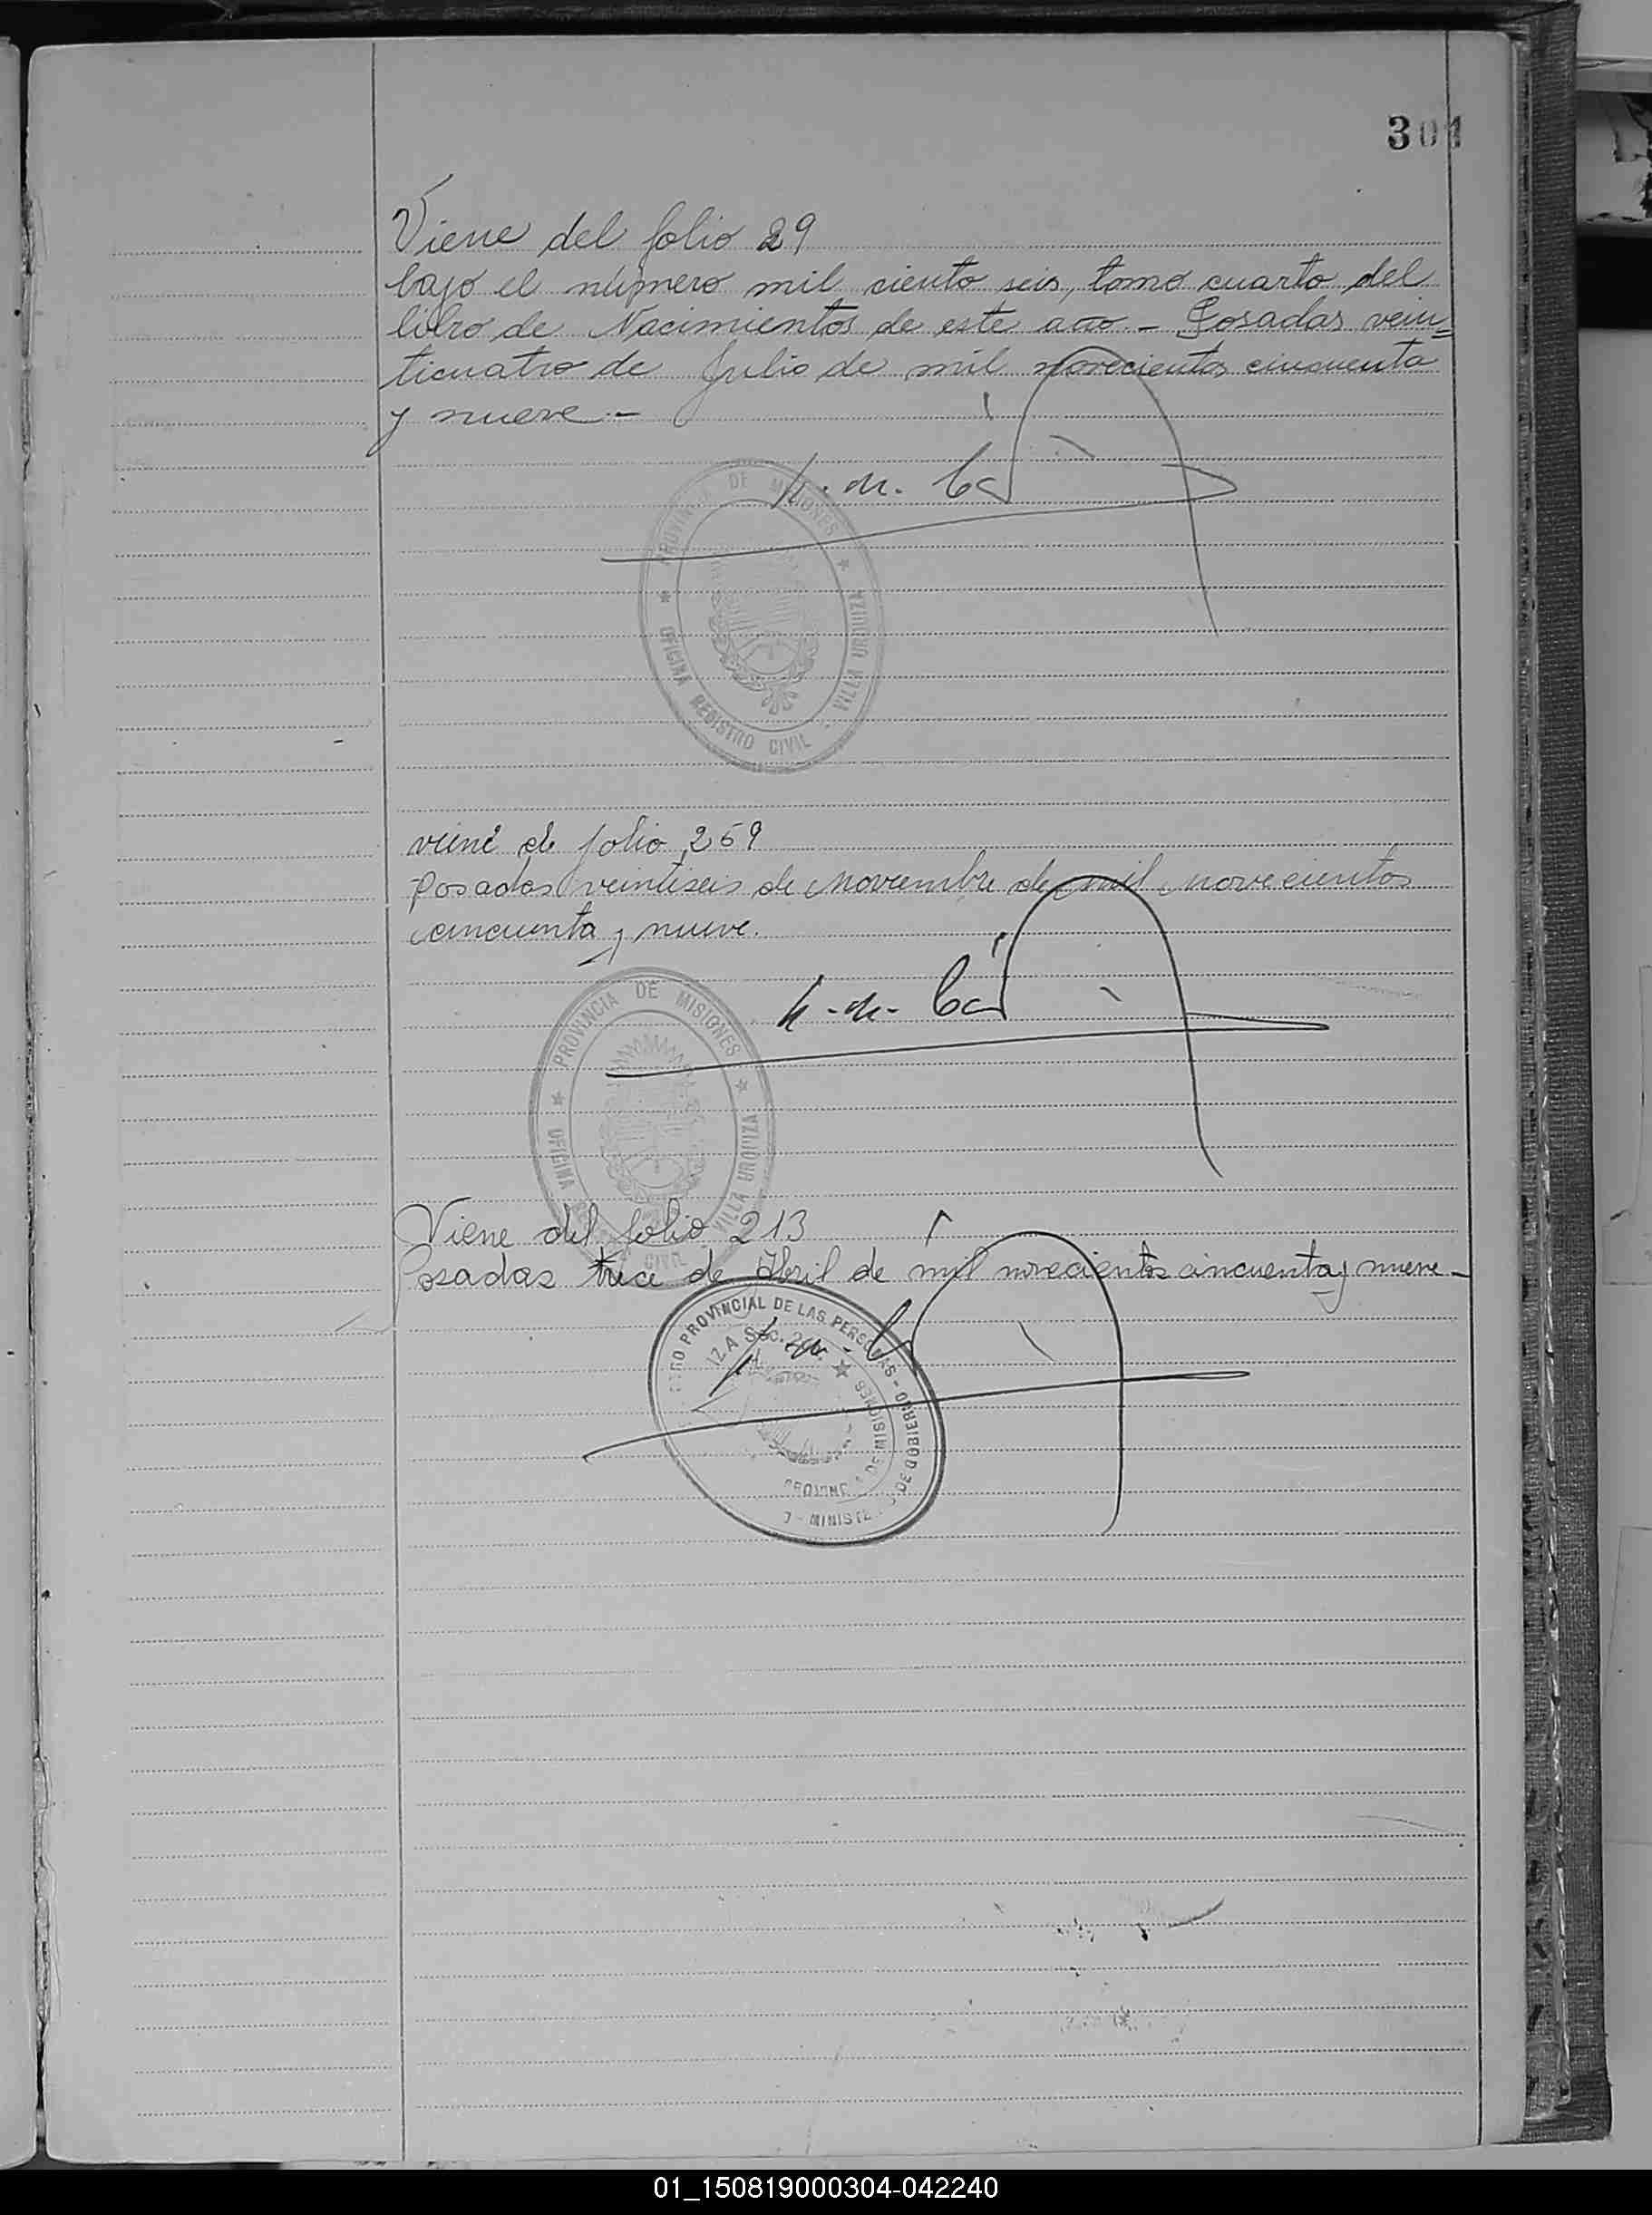 301
Viene del folio 29
bajo el número mil ciento seis, tomo cuarto del
libro de Nacimientos de este año - Posadas vein=
ticuatro de Julio de mil novecientos cincuenta
y nueve.-
PROVINCIA DE MISIONES
OFICINA REGISTRO CIVIL - VILLA URQUIZA
viene de folio 259
Posadas veintiseis de Noviembre de mil novecientos
cincuenta y nueve.
PROVINCIA DE MISIONES
OFICINA CIVIL VILLA URQUIZA
Viene del folio 213
Posadas trece de Abril de mil novecientos cincuenta y nueve-
PROVINCIAL DE LAS PERSONAS - DE GOBIERNO
DE MISIONES
01_150819000304-042240